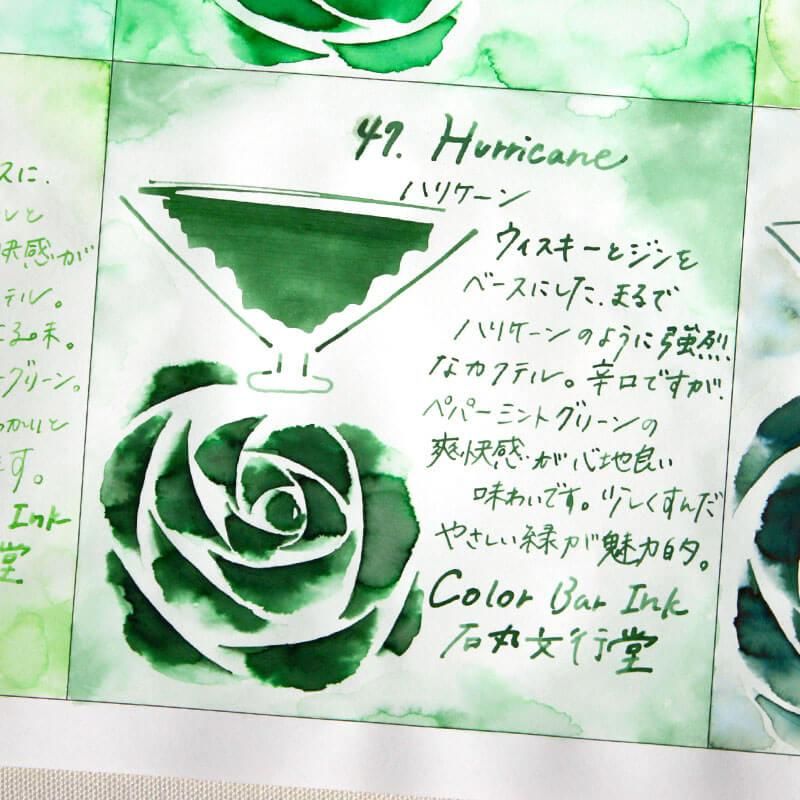 47. Hurricane
ハリケーン
ウィスキーとジンを
ベースにした、まるで
ハリケーンのように強烈
なカクテル。辛口ですが、
ペパーミントグリーンの
爽快感が心地良い
味わいです。少しくすんだ
やさしい緑が魅力的。
Color Bar Ink
石丸文行堂
スに、
ルと
快感が
テル。
る味。
グリーン。
っかりと
ます。
Ink
堂